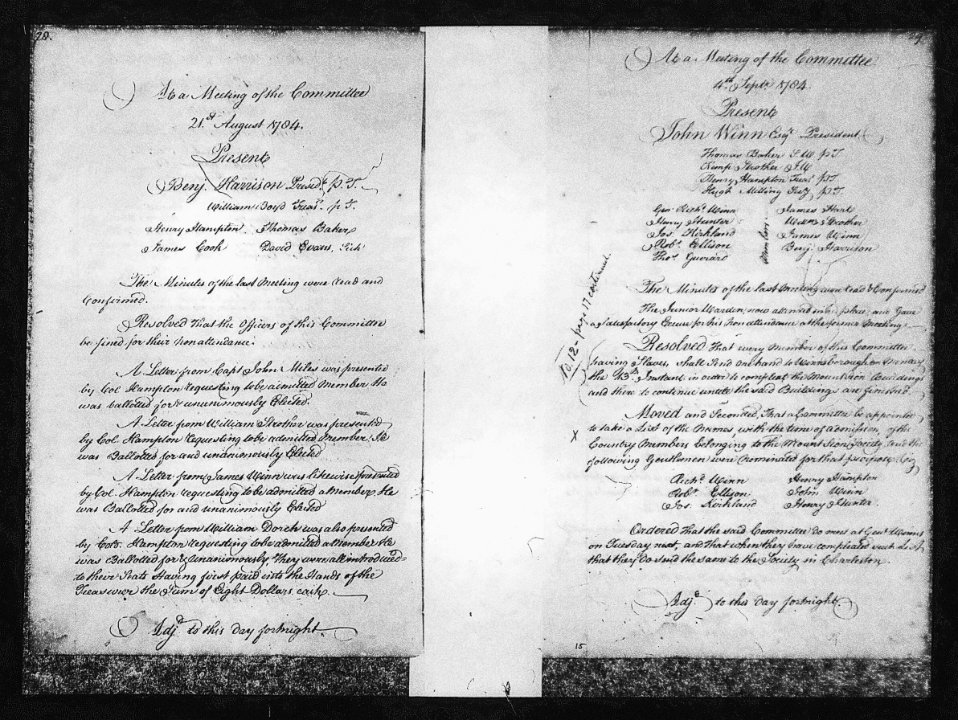 28.
At a Meeting of the Committee
21st August 1784.
Present
Benj. Harrison Presidt. p. T.
William Boyd Treasr. p T.
Henry Hampton. Thomas Baker
James Cook David Evans, Sec
The Minutes of the last Meeting were read and
Confirmed.
Resolved That the Officers of this Committee
be fined for their non attendance.
A Letter from Capt John Miles was presented
by Col Hampton requesting to be admitted Member. He
was balloted for & unanimously Elected.
A Letter from William Strother was presented
by Col. Hampton requesting to be admitted Member. He
was Ballotted for and unanimously Elected
A Letter from James Winn was likewise presented
by Col. Hampton requesting to be admitted a Member. He
was Ballotted for and unanimously Elected
A Letter from William Dorch was also presented
by Colo. Hampton requesting to be admitted a Member. He
was Ballotted for & unanimously, They were all introduced
to their Seats Having first paid into the Hands of the
Treasurer the Sum of Eight Dollars each.
Adjd. to this day fortnight.
29
At a Meeting of the Committee
4th Septr. 1784.
Present
John Winn Esqr. President
Thomas Baker S. W. p T.
Kemp Strother J W
Henry Hampton Treasr. pT.
Hugh Milling Secy. pT.
Genl. Richd. Winn James Hart
Henry Hunter Willm. Strother
Jos. Kirkland James Winn
Robt. Ellison Benj. Harrison
Thos. Guerard
Members
The Minutes of the last Meeting were read & Confirmed
The Junior Warden, now attended in his place, and Gave
a Satisfactory Excuse for his non attendance at the former Meeting.
Resolved That every Member of this Committee
having Slaves, shall send one hand to Winnsborough on Monday
the 13th. Instant in order to compleat the Mount Zion Buildings
and there to continue untill the said Buildings are finished.
to 12 - page 17 continued
Moved and Seconded, That a Committee be appointed
to take a List of the Names with the time of admission, of the
X
Country Members belonging to the Mount Sion Society, and the
following Gentlemen were nominated for that purpose, Viz,
Richd. Winn Henry Hampton
Robt. Ellison John Winn
Jos. Kirkland Henry Hunter
Ordered that the said Committee do meet at Genl. Winns
on Tuesday next, and that when they have compleated such List,
that they do send the same to the Society in Charleston.
Adjd. to this day fortnight.
15